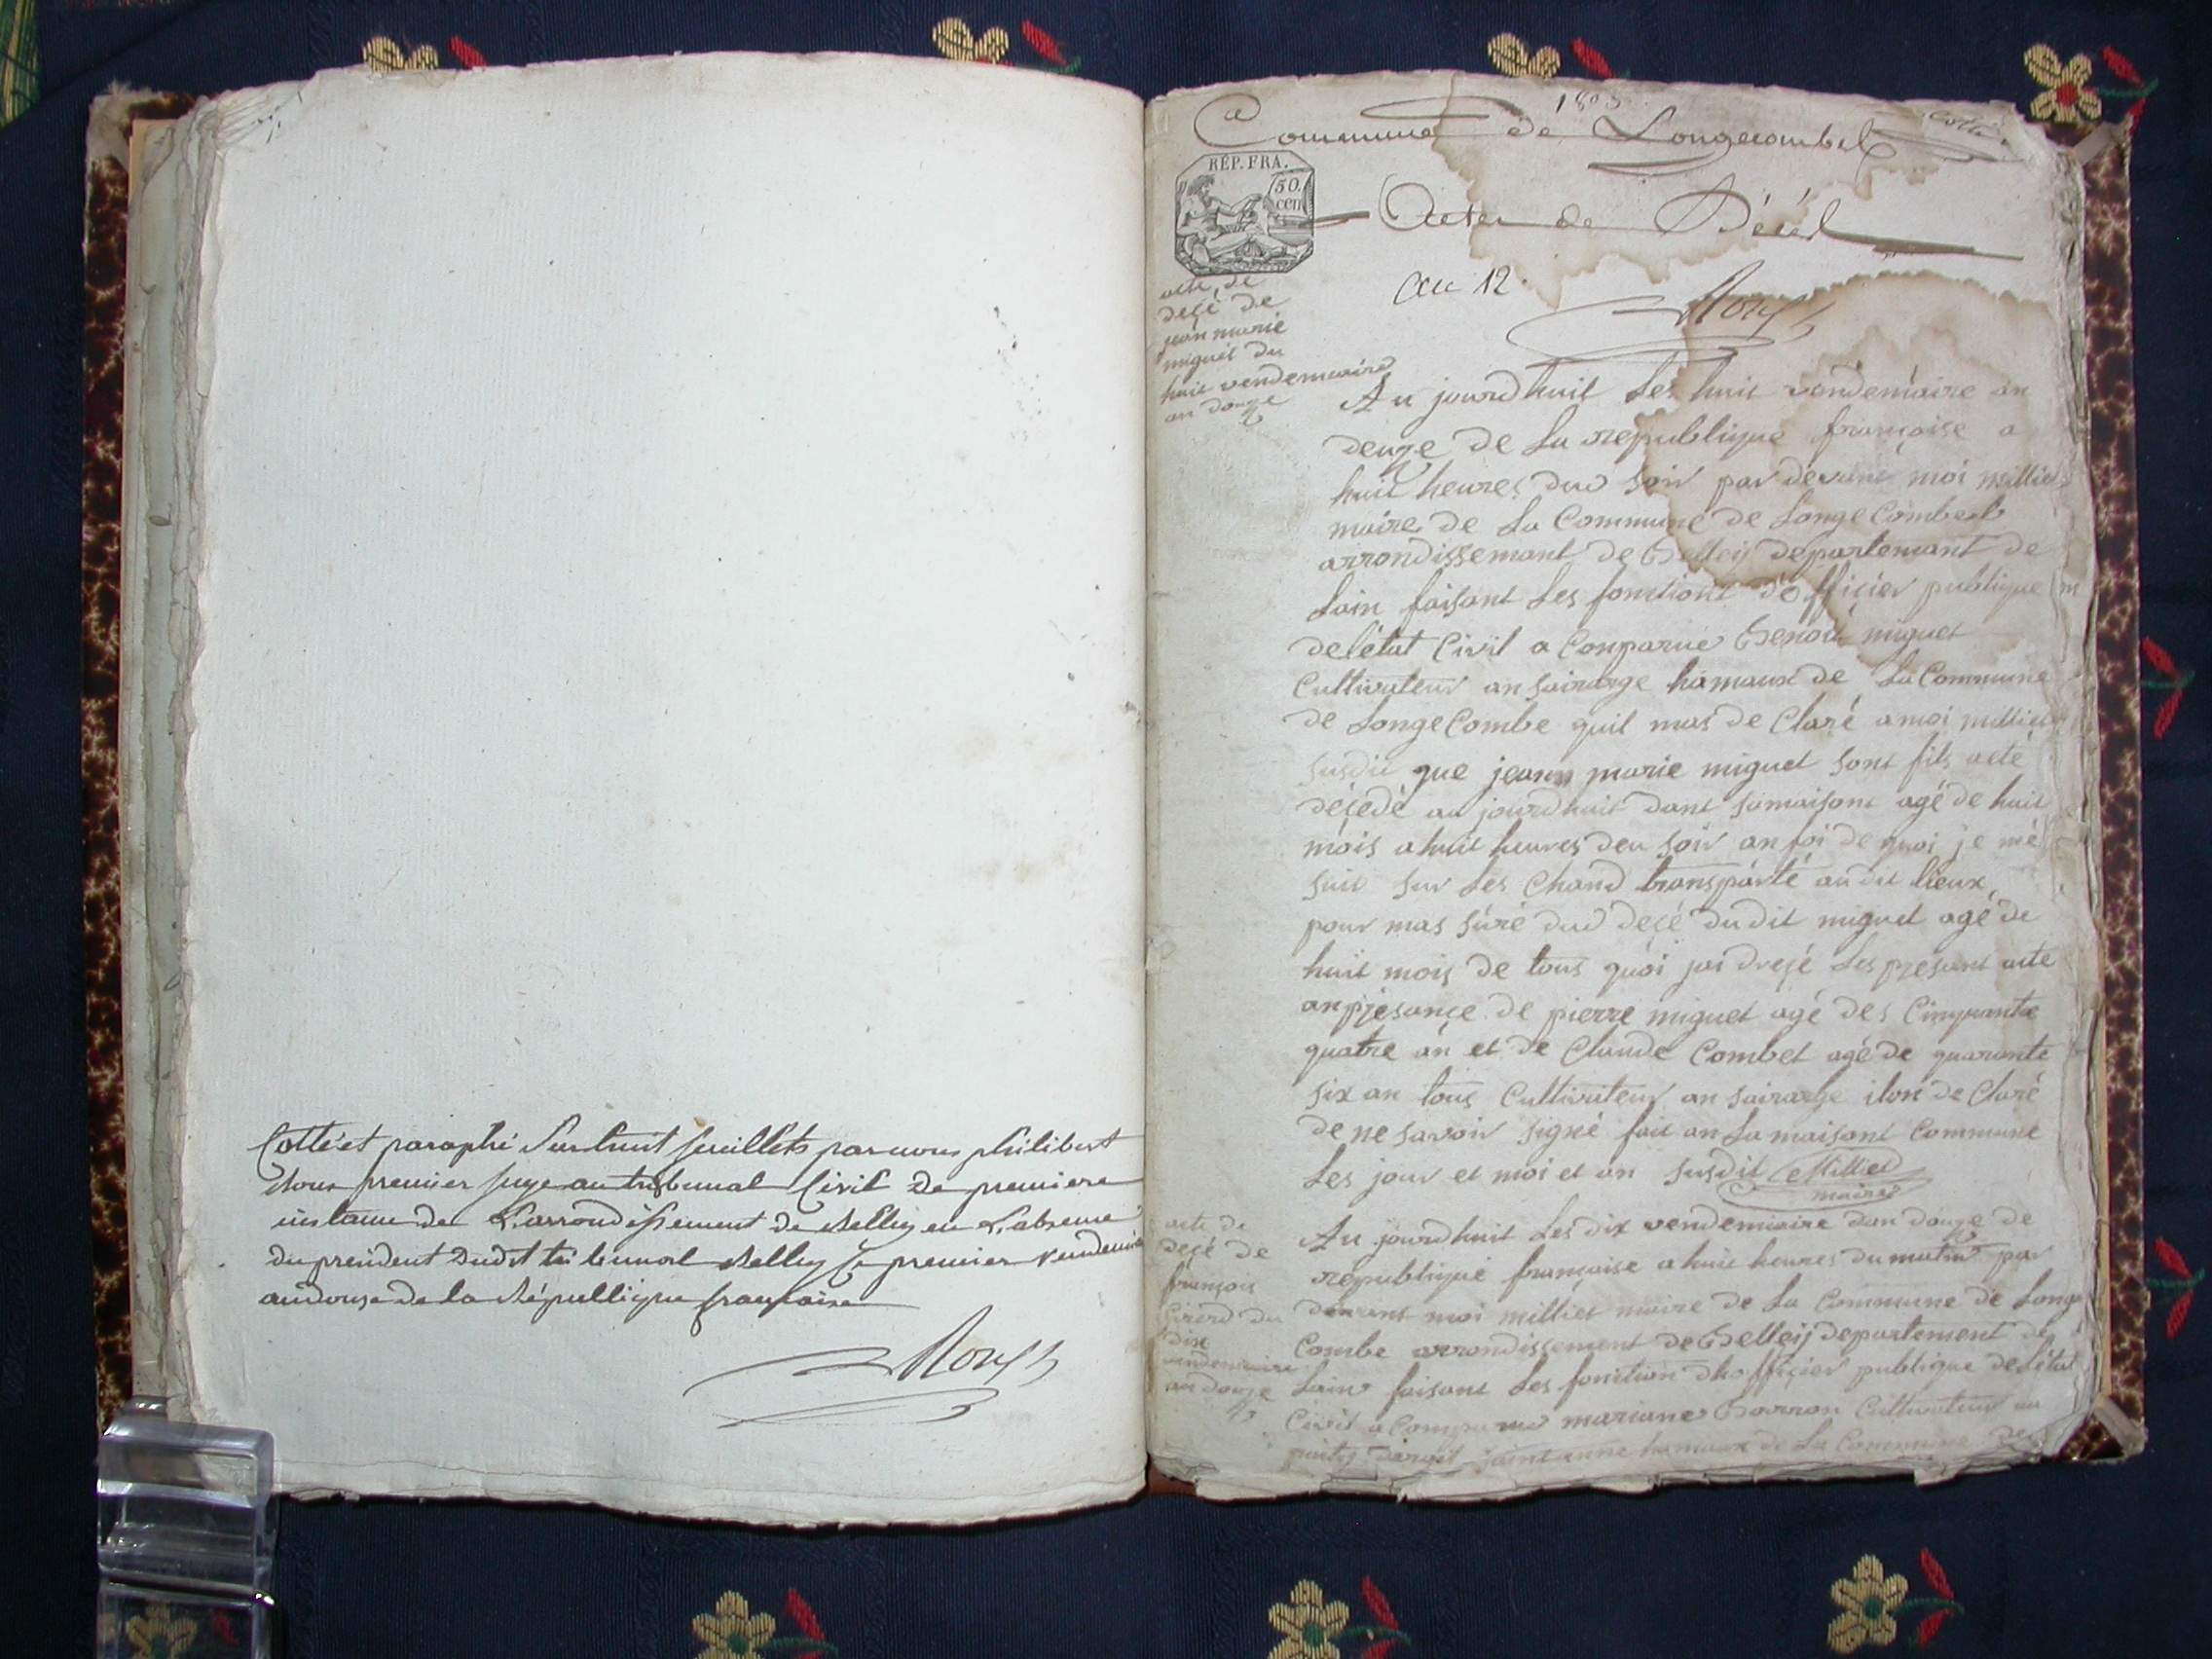 Cotté et paraphé Sur huit feuillets par nous philibert
Roux premier juge au tribunal Civil De premiere
instance de L'arrondissement de Belley en L'absence
du président Dudit tribunal Belley le premier vendemiaire
an douze de la République française
1803
Commune de Longecombe
RÉP. FRA.
50.
cen
Actes de Décés
an 12
acte de
deçé de
jean marie
miguet du
huit vendemiaire
an douze
Au jourdhuit Les huit vendemaire an
deuze de La republique françaïse a
huit heures dud soir par devant moi milliet
maire de La Commune de Longe Combe
arrondissemant de Belleij departemant de
Lain faisant Les fonctions d'officier publique
de létat Civil a Conparue Benoit miguet
Cultivateur an sairarge hamaux de La Commune
de Longe Combe quil mas de Claré a moi milliet
susdit que jeann marie miguet sont fils aeté
déçedé au jourdhuit dant samaisont agé de huit
mois a huit heures deu soir an foi de quoi je mé
suit sur Les Chand transpárté au dit lieux
pour mas súré dud deçé dudit miguet agé de
huit mois de tous quoi jai dreçé Les présant acte
an présançe de pierre miguet agé des Cinquante
quatre an et de Claude Combet agé de quarante
six an tous Cultivateur an sairarge ilon de Claré
de ne savoir signé fait an La maisont Commune
Les jour et moi et an susdit Milliet
maire
acte de
deçé de
françois
du
dix
vendemiaire
an douze
Au jourdhuit Les dix vendemiaire dan douze de
republique françaïse a huit heures du matin par
devant moi milliet maire de La Commune de Longe
Combe arrondissement de Belleij departement de
Lain faisant Les fonction dhofficier publique de Létat
Civil a Comparue mariane Cultivateur au
saint anne hamaux de La Commune de